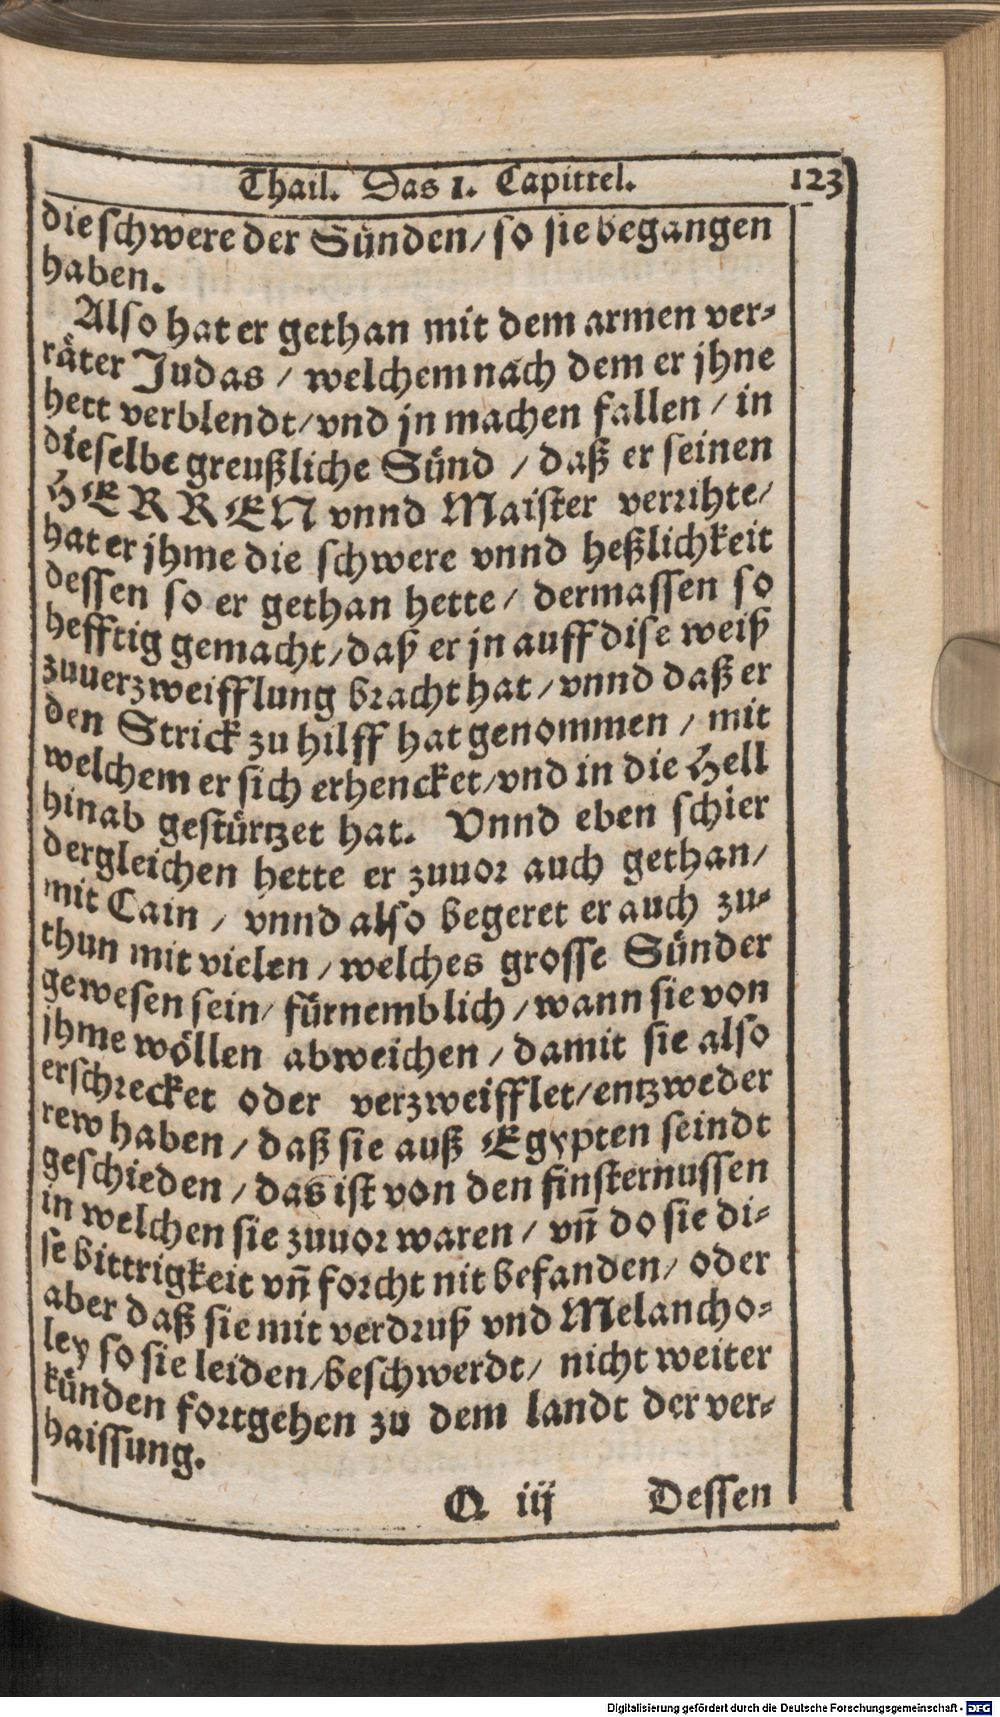 Thail. Das 1. Capittel. 123
die schwere der Sünden/ so sie begangen
haben.
Also hat er gethan mit dem armen ver-
räter Judas / welchem nach dem er jhne
hett verblendt/ vnd jn machen fallen / in
dieselbe greußliche Sünd / daß er seinen
HERREN vnnd Maister verrihte/
hat er jhme die schwere vnnd heßlichkeit
dessen so er gethan hette / dermassen so
hefftig gemacht/ daß er jn auff dise weiß
zuuerzweifflung bracht hat / vnnd daß er
den Strick zu hilff hat genommen / mit
welchem er sich erhencket/ vnd in die Hell
hinab gestürtzet hat. Vnnd eben schier
dergleichen hette er zuuor auch gethan/
mit Cain / vnnd also begeret er auch zu-
thun mit vielen / welches grosse Sünder
gewesen sein/ fürnemblich / wann sie von
jhme wöllen abweichen / damit sie also
erschrecket oder verzweifflet/ entzweder
rew haben / daß sie auß Egypten seindt
geschieden / das ist von den finsternussen
in welchen sie zuuor waren / vñ do sie di-
se bittrigkeit vñ forcht nit befanden/ oder
aber daß sie mit verdruß vnd Melancho-
ley so sie leiden/ beschwerdt/ nicht weiter
künden fortgehen zu dem landt der ver-
haissung.
Q iij Dessen
Digitalisierung gefördert durch die Deutsche Forschungsgemeinschaft - DFG